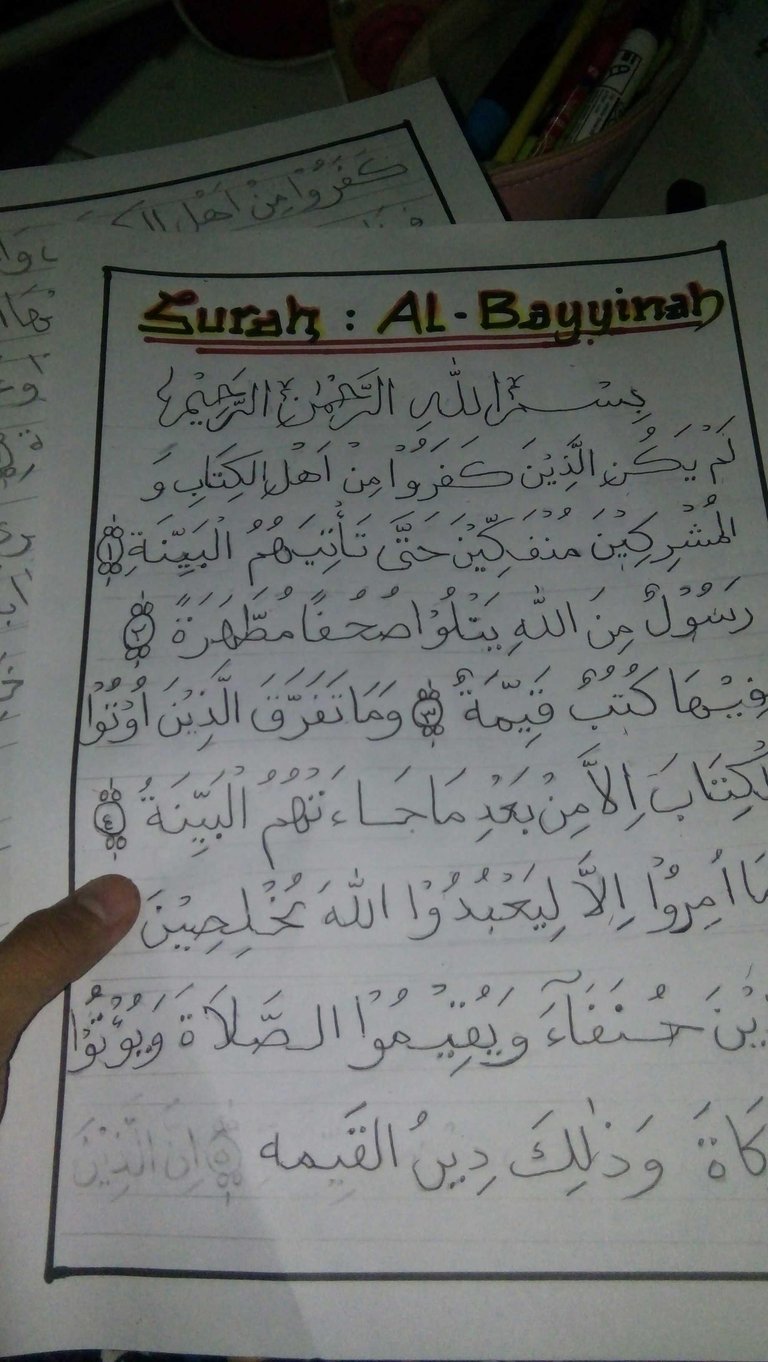 كَفَرُوْا مِنْ اَهْلِ ال
Surah : Al-Bayyinah
بِسْمِ اللّٰهِ الرَّحْمٰنِ الرَّحِيْمِ
لَمْ يَكُنِ الَّذِيْنَ كَفَرُوْا مِنْ اَهْلِ الْكِتَابِ وَ
الْمُشْرِكِيْنَ مُنْفَكِّيْنَ حَتَّى تَأْتِيَهُمُ الْبَيِّنَةِ ١
رَسُوْلٌ مِنَ اللّٰهِ يَتْلُوْا صُحُفًا مُطَّهَرَةً ٢
فِيْهَا كُتُبٌ قَيِّمَةٌ ٣ وَمَا تَفَرَّقَ الَّذِيْنَ اُوْتُوْا
لْكِتَابَ اِلَّا مِنْ بَعْدِ مَا جَاءَتْهُمُ الْبَيِّنَةُ ٤
مَا اُمِرُوْا اِلَّا لِيَعْبُدُوْا اللّٰهَ مُخْلِصِيْنَ
دِّيْنَ حُنَفَآءَ وَيُقِيْمُوْا الصَّلَاةَ وَيُؤْتُوْا
كَاةَ وَذٰلِكَ دِيْنُ الْقَيِّمه ٥ اِنَّ الَّذِيْنَ